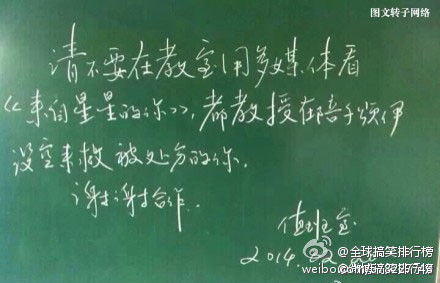 图文转子网络
请不要在教室用多媒体看
《来自星星的你》,都教授在陪千颂伊
没空来救被处分的你.
谢谢合作.
值班室
2014.2.
@全球搞笑排行榜
weibo.com/